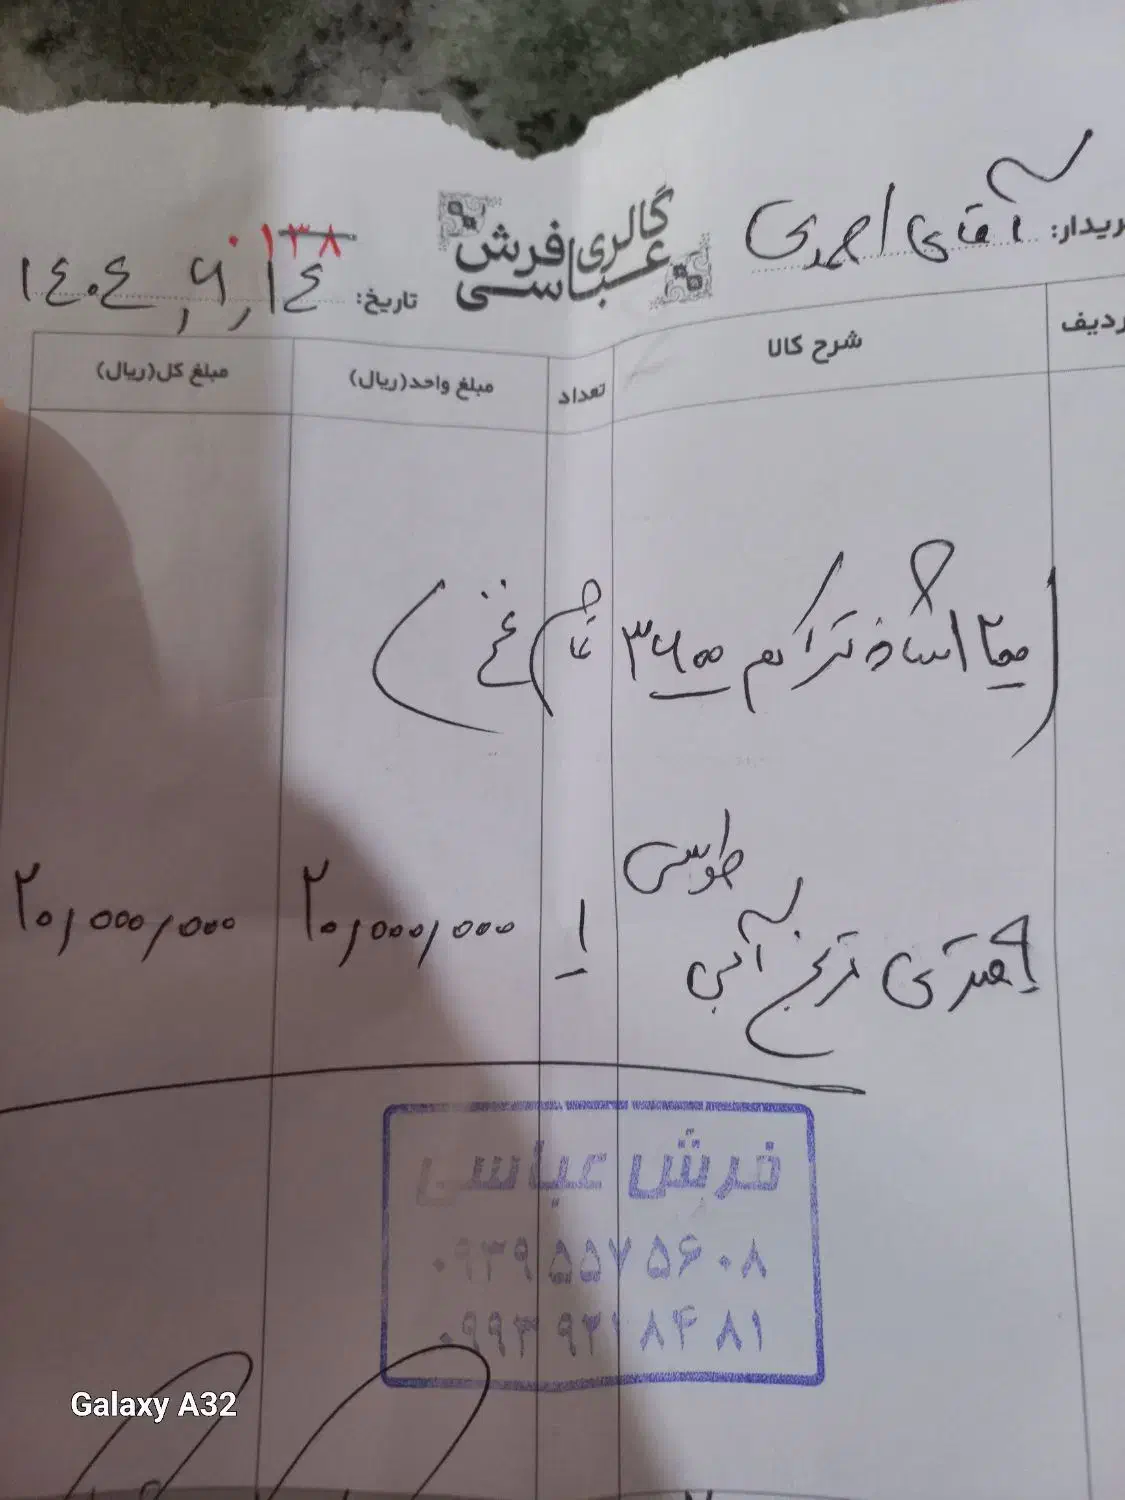 خریدار: آقای احمدی
گالری فرش عباسی
۰۱۳۸
تاریخ: ۱۴۰۴,۶,۱۴
ردیف شرح کالا تعداد مبلغ واحد(ریال) مبلغ کل(ریال)
(۱۲۰۰ شانه تراکم ۳۶۰۰ تمام نخ)
طوسی
۶متری ترنج آبی ۱ ۲۰,۰۰۰,۰۰۰ ۲۰,۰۰۰,۰۰۰
فرش عباسی
۰۹۳۹ ۵۵۷ ۵۶۰۸
۰۹۹۳ ۹۲۱ ۸۴ ۸۱
Galaxy A32